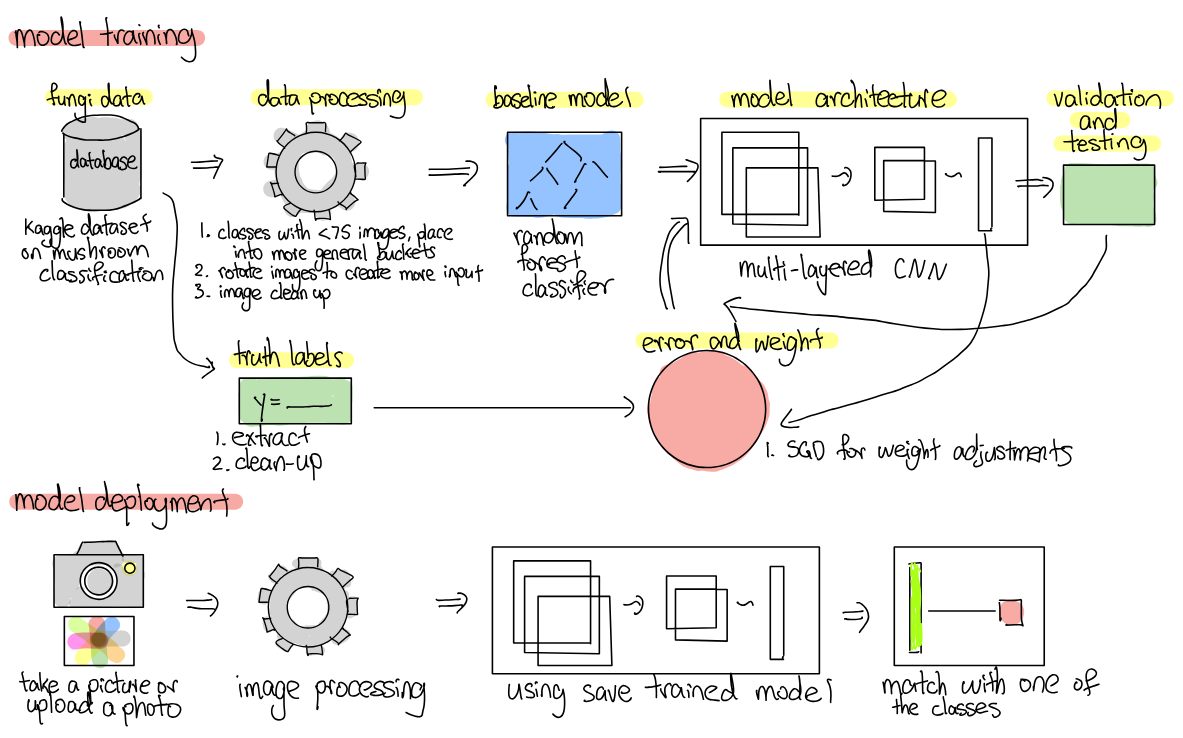 model training
fungi data
database
kaggle dataset
on mushroom
classification
data processing
1. classes with <75 images, place
into more general buckets
2. rotate images to create more input
3. image clean up
baseline model
random
forest
classifier
model architecture
multi-layered CNN
validation
and
testing
truth labels
y = ____
1. extract
2. clean-up
error and weight
1. SGD for weight adjustments
model deployment
take a picture or
upload a photo
image processing
using save trained model
match with one of
the classes